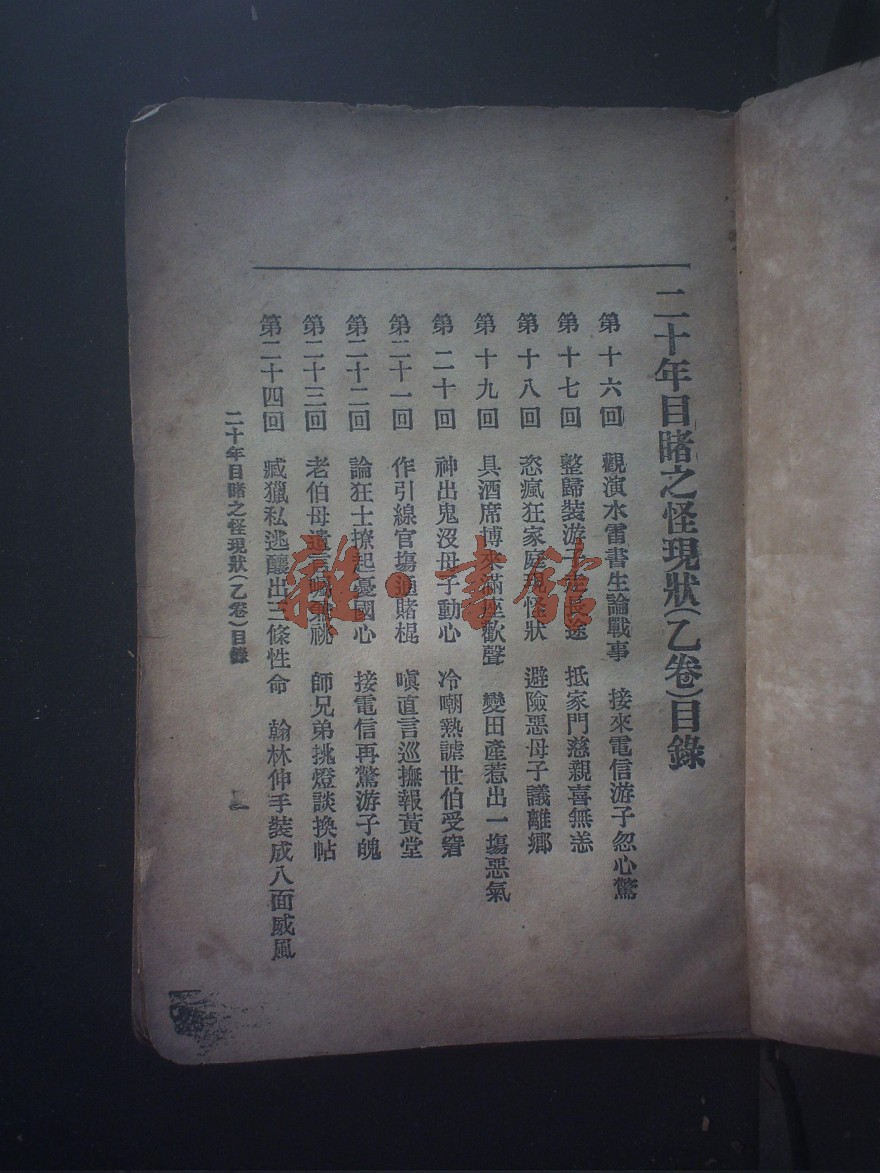 二十年目睹之怪現狀(乙卷)目錄
第十六回 觀演水雷書生論戰事 接來電信游子忽心驚
第十七回 整歸裝游子走長途 抵家門慈親喜無恙
第十八回 恣瘋狂家庭現怪狀 避險惡母子議離鄉
第十九回 具酒席博來滿座歡聲 變田產惹出一塲惡氣
第二十回 神出鬼沒母子動心 冷嘲熱謔世伯受窘
第二十一回 作引線官塲通賭棍 嗔直言巡撫報黃堂
第二十二回 論狂士撩起憂國心 接電信再驚游子魄
第二十三回 老伯母遺言囑兼祧 師兄弟挑燈談換帖
第二十四回 臧獲私逃釀出三條性命 翰林伸手裝成八面威風
二十年目睹之怪現狀(乙卷)目錄
雜·書館